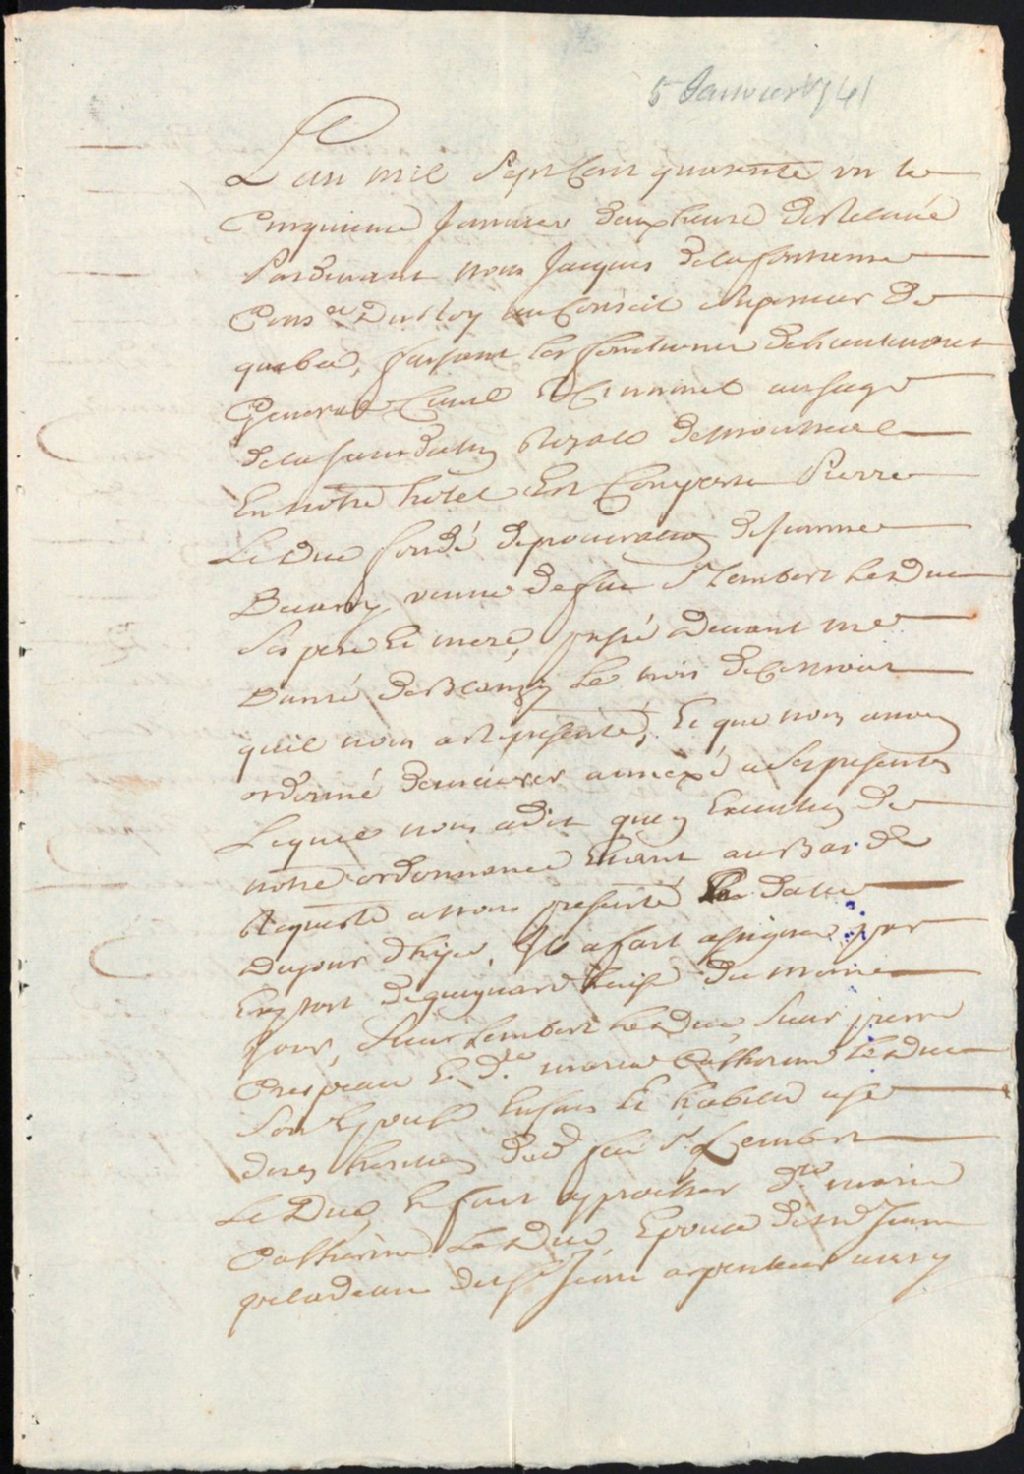 5 Janvier 1741
L'an mil sept Cent quarente un le
Cinquieme Janvier deux heures de Relevée
Pardevant nous Jacques de lafontaine
Cons.er Du Roy au Conseil superieur de
quebec, faisant les fonctions de Lieutenant
General Civil & Criminel au siege
de la Jurisdiction Royale de Montreal
En notre hotel Est Comparu Pierre
Le Duc fondé de procuration de Jeanne
veuve de feu S.r Lembert Le Duc
Ses pere et mere, passé devant me
Danré de Blanzy Le trois de Ce mois
quil nous a Representé, Et que nous avons
ordonné demeurer annexé a Ces presentes
Lequel nous a dit quen Execution de
notre ordonnance Etant au Bas de
Requeste a nous presenté En datte
Du jour d'hier, Il a fait assigner par
Exploit de guignard huissier du meme
jour, Sieur Lembert Le Duc, Sieur pierre
Crespeau Et d.e marie Catherine Le Duc
Son Epouse Enfans Et habiles a se
dires heritiers dud. feu S.r Lembert
Le Duc, Et fait approcher d.e marie
Catherine Le Duc Epouse de S.r Jean
peladeau de S.t Jean arpenteur